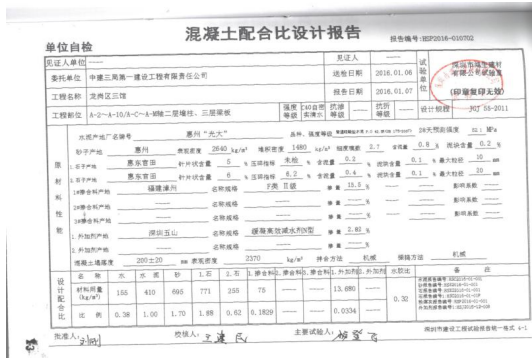 混凝土配合比设计报告
单位自检
报告编号:HSP2016-010702
见证人单位 ---- 见证人 ----
委托单位 中建三局第一建设工程有限责任公司 送检日期 2016.01.06
试验单位
工程名称 龙岗区三馆 报告日期 2016.01.07
(印章复印无效)
工程部位 A-2~A-10/A-C~A-M轴二层墙柱、三层梁板 强度等级 抗渗等级 ---- 抗折等级 ---- 设计规程 JGJ 55-2011
原材料性能
水泥产地厂名牌号 惠州“光大” 品种、强度等级 28天预测强度 MPa
砂子产地 惠州 表观密度 2640 kg/m³ 堆积密度 1480 kg/m³ 细度模数 2.7 含泥量 0.8 % 泥块含量 0.1 %
1.石子产地 惠东官田 针片状含量 5 % 压碎指标 未检 % 含泥量 0.2 % 泥块含量 0.1 % 最大粒径 10 mm
2.石子产地 惠东官田 针片状含量 6 % 压碎指标 6.2 % 含泥量 0.4 % 泥块含量 0.1 % 最大粒径 mm
1#掺合料产地 福建漳州 名称规格 F类 II级 掺量 15.5 % 影响系数 ----
2#掺合料产地 ---- 名称规格 ---- 掺量 ---- % 影响系数 ----
3#掺合料产地 ---- 名称规格 ---- 掺量 ---- % 影响系数 ----
1.外加剂产地 深圳五山 名称规格 缓凝高效减水剂N型 掺量 2.82 %
2.外加剂产地 ---- 名称规格 ---- 掺量 ---- %
混凝土坍落度 200±20 mm 表观密度 2370 kg/m³ 拌合方法 机械 振捣方法 机械
设计配合比
名称 水 水泥 砂 1.石 2.石 1.掺合料 2.掺合料 3.掺合料 1.外加剂 2.外加剂 水胶比 备注
材料用量(kg/m³) 155 410 695 771 255 75 ---- ---- 13.680 ---- 0.32
比例 0.38 1.00 1.70 1.88 0.62 0.1829 ---- ---- 0.0334 ----
批准人: 校核人: 主要试验人:
深圳市建设工程试验报告统一格式 4-1